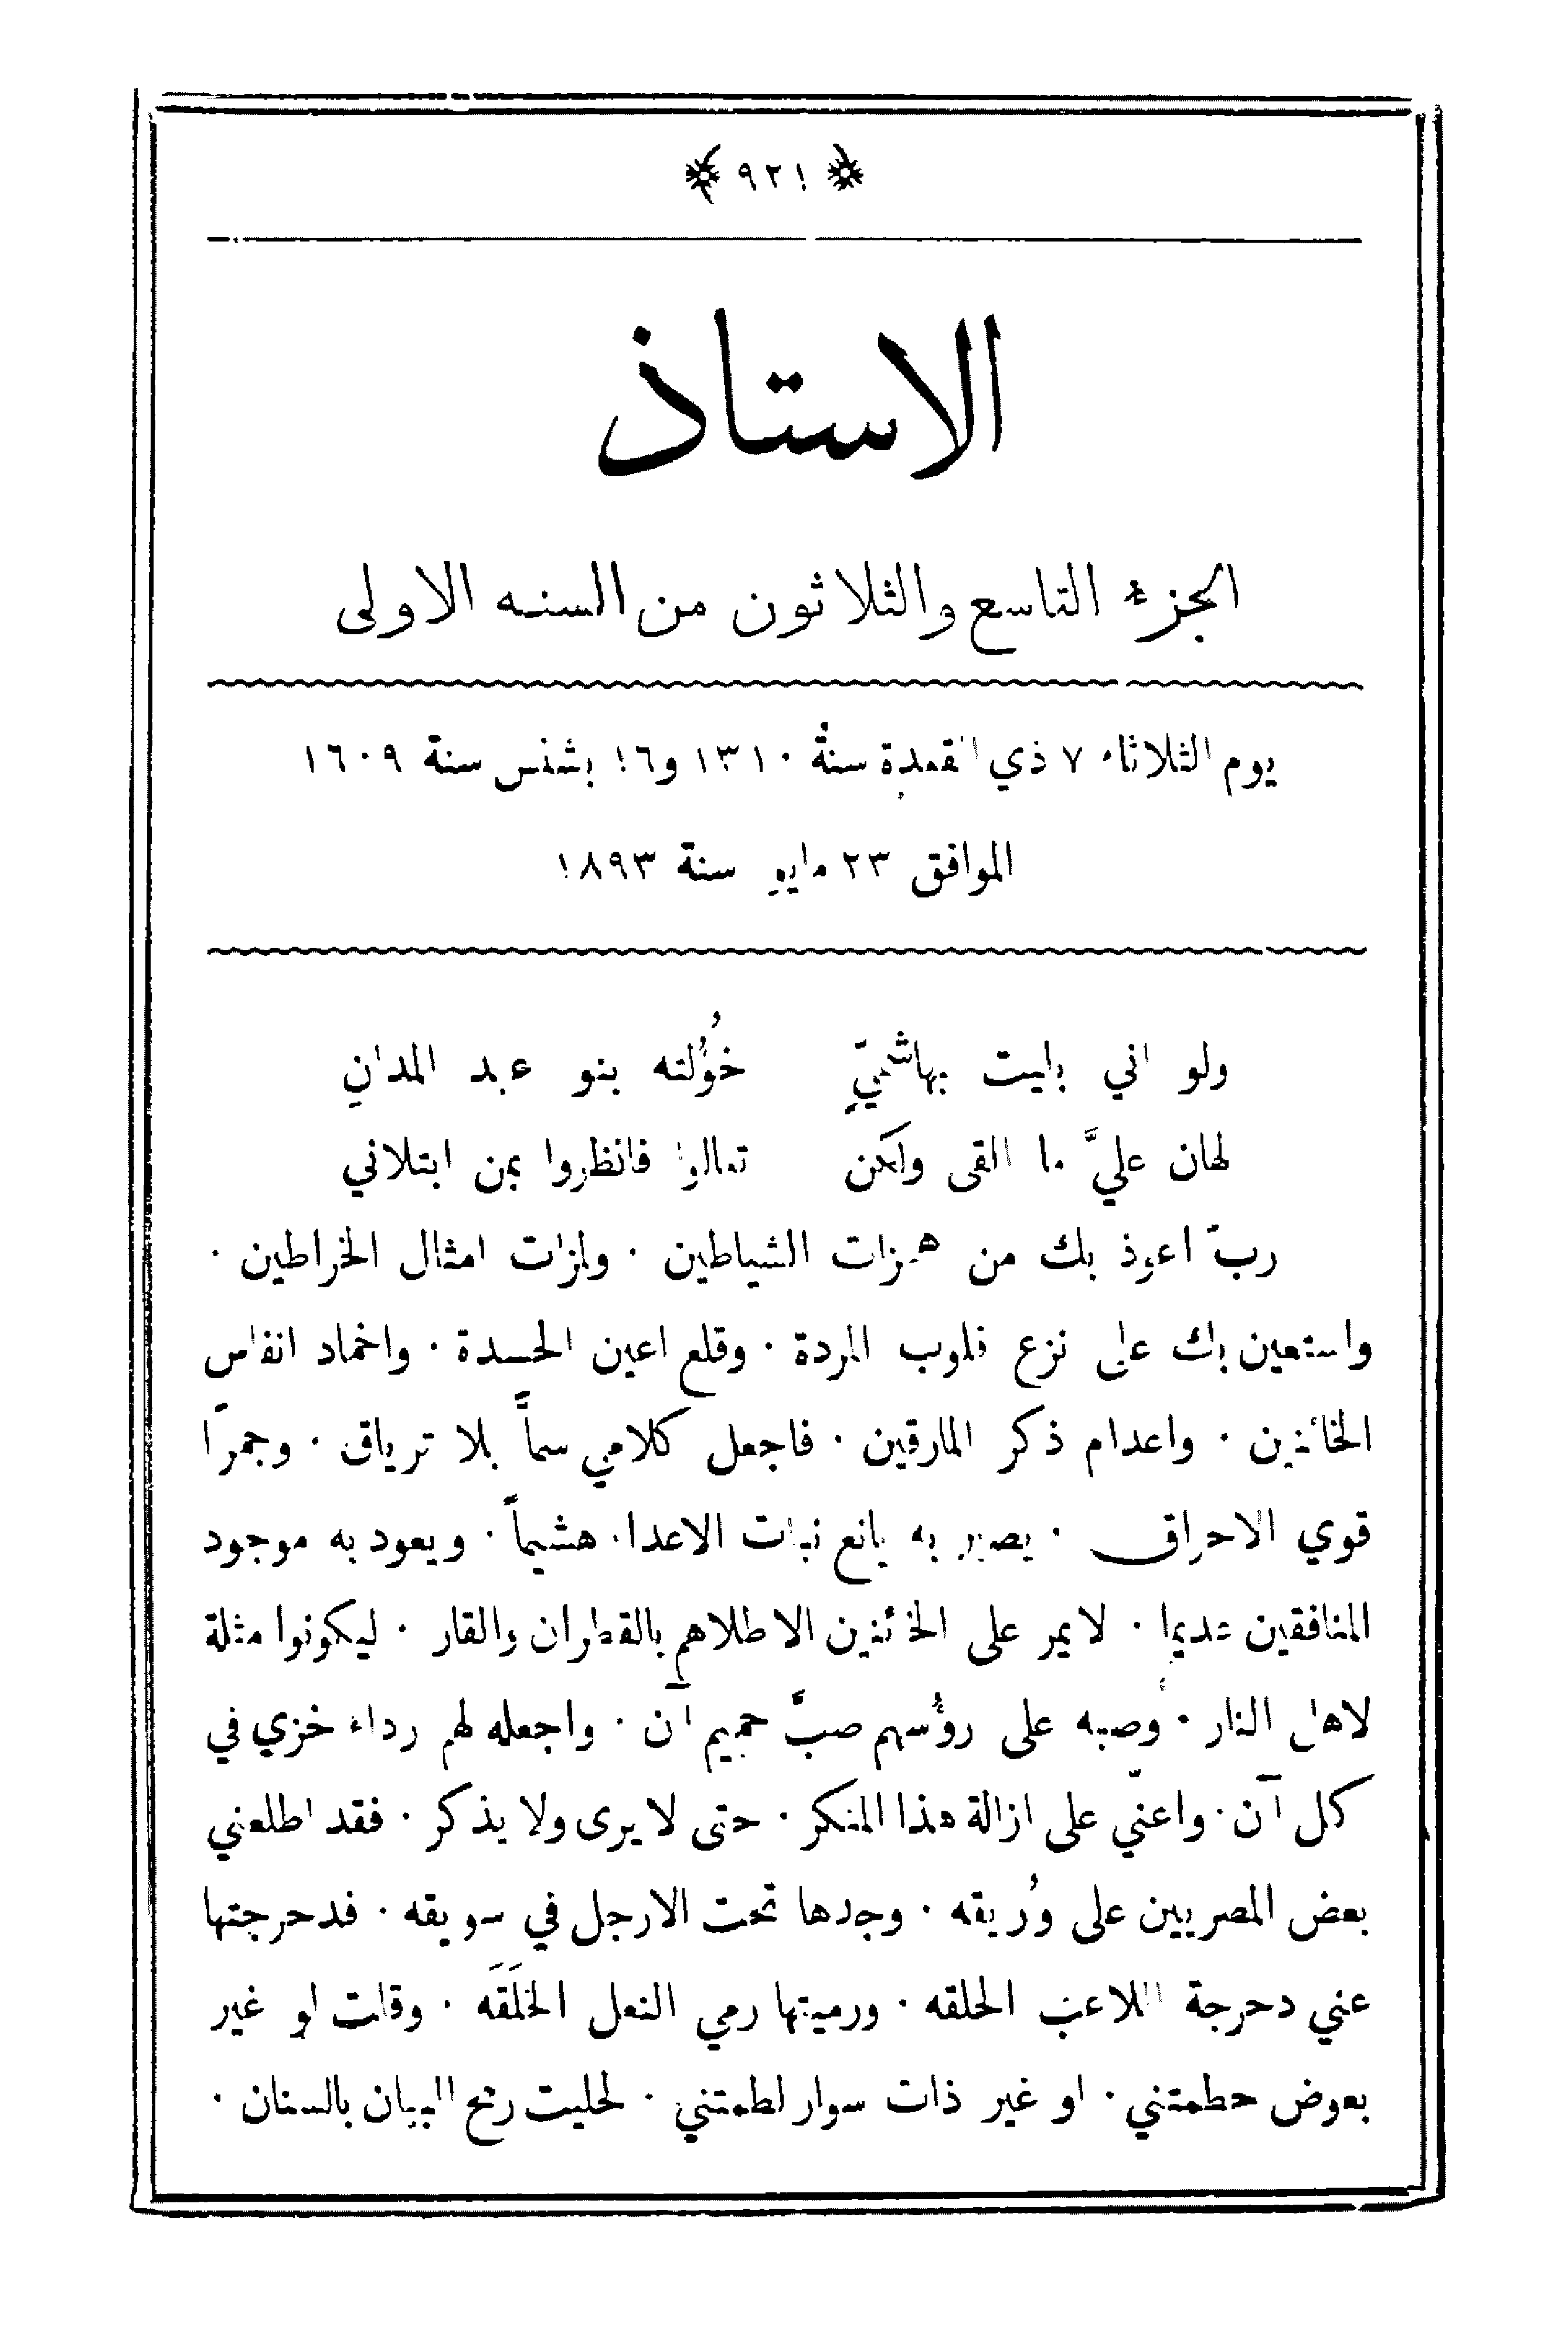 ﴿ ٩٢١ ﴾
الاستاذ
الجزء التاسع والثلاثون من السنه الاولى
يوم الثلاثاء ٧ ذي القعدة سنة ١٣١٠ و١٦ بشنس سنة ١٦٠٩
الموافق ٢٣ مايو سنة ١٨٩٣
ولو اني بليت بهاشميٍّ خُؤُلته بنو عبد المدانِ
لهان عليَّ ما القى ولكن تعالوا فانظروا بمن ابتلاني
ربّ اعوذ بك من همزات الشياطين · ولمزات امثال الخراطين ·
واستعين بك على نزع قلوب المردة · وقلع اعين الحسدة · واخماد انفاس
الخائنين · واعدام ذكر المارقين · فاجعل كلامي سماً بلا ترياق · وجمرًا
قوي الاحراق · يصير به يانع نبات الاعداء هشيماً · ويعود به موجود
المنافقين عديما · لا يمر على الخائنين الا طلاهم بالقطران والقار · ليكونوا مثلة
لاهل النار · وصبه على رؤُسهم صبَّ حميم آن · واجعله لهم رداء خزي في
كل آن · واعنّي على ازالة هذا المنكر · حتى لا يرى ولا يذكر · فقد اطلعني
بعض المصريين على وُريقه · وجدها تحت الارجل في سويقه · فدحرجتها
عني دحرجة اللاعب الحلقه · ورميتها رمي النعل الخلَقَه · وقلت لو غير
بعوض حطمتني · او غير ذات سوار لطمتني · لحليت رمح البيان بالسنان ·